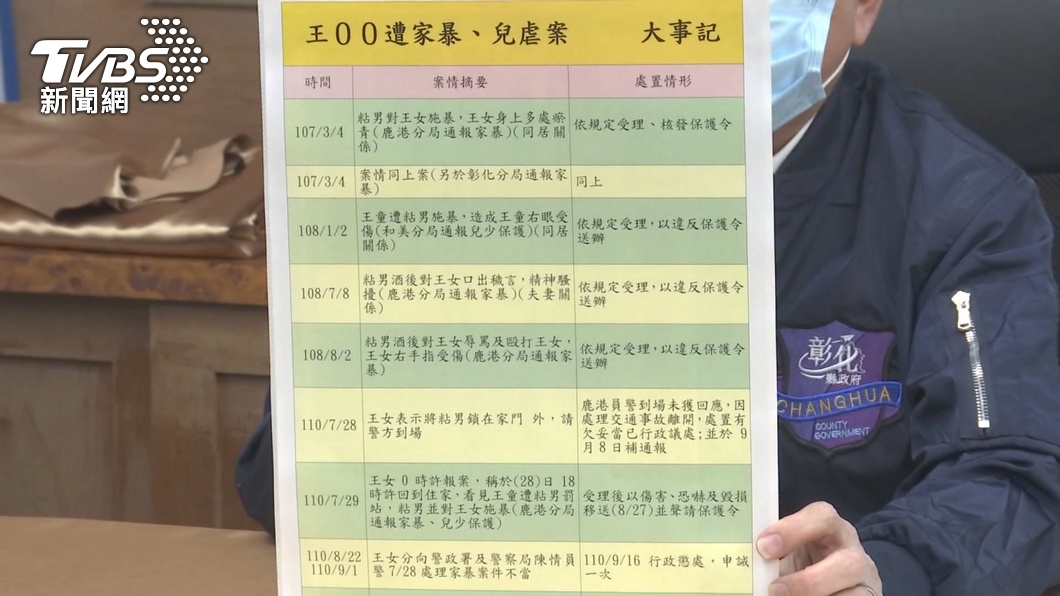 TVBS
新聞網
王００遭家暴、兒虐案 大事記
時間 案情摘要 處置情形
107/3/4
粘男對王女施暴，王女身上多處瘀
青(鹿港分局通報家暴)(同居關
係)
依規定受理、核發保護令
107/3/4
案情同上案(另於彰化分局通報家
暴)
同上
108/1/2
王童遭粘男施暴，造成王童右眼受
傷(和美分局通報兒少保護)(同居
關係)
依規定受理，以違反保護令
送辦
108/7/8
粘男酒後對王女口出穢言，精神騷
擾(鹿港分局通報家暴)(夫妻關
係)
依規定受理，以違反保護令
送辦
108/8/2
粘男酒後對王女辱罵及毆打王女，
王女右手指受傷(鹿港分局通報家
暴)
依規定受理，以違反保護令
送辦
110/7/28
王女表示將粘男鎖在家門 外，請
警方到場
鹿港員警到場未獲回應，因
處理交通事故離開，處置有
欠妥當已行政議處;並於 9
月 8 日補通報
110/7/29
王女 0 時許報案，稱於(28)日 18
時許回到住家，看見王童遭粘男罰
站，粘男並對王女施暴(鹿港分局
通報家暴、兒少保護)
受理後以傷害、恐嚇及毀損
移送(8/27)並聲請保護令
110/8/22
110/9/1
王女分向警政署及警察局陳情員
警 7/28 處理家暴案件不當
110/9/16 行政懲處，申誡
一次
彰化
縣政府
CHANGHUA
COUNTY
GOVERNMENT